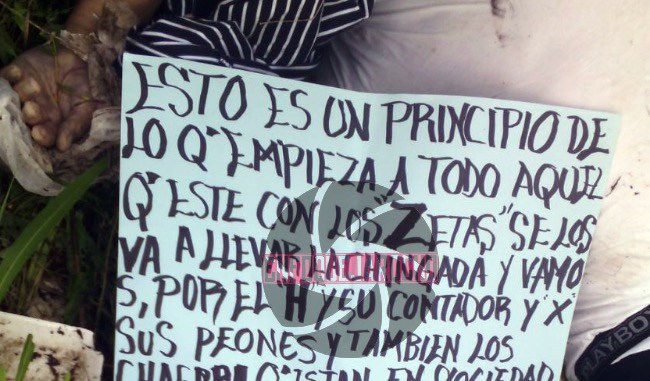 ESTO ES UN PRINCIPIO DE
LO Q" EMPIEZA A TODO AQUEL
Q" ESTE CON LOS "ZETAS" SE LOS
VA A LLEVAR LA CHINGADA Y VAMO
S, POR EL H Y SU CONTADOR Y "X"
SUS PEONES Y TAMBIEN LOS
Q" ISTAN EN SOCIEDAD
PLAYBOY